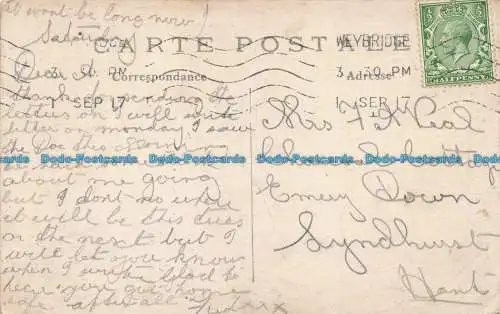 wont be long now!
Saturday
CARTE POSTALE
Correspondance
Adresse
WEYBRIDGE
3 30 PM
1 SEP 17
3 PM
1 SEP 17
HALFPENNY
Dear
thanks for sending the
letters on I will write
letter on monday I saw
the Doc this
Dodo-Postcards Dodo-Postcards Dodo-Postcards Dodo-Postcards
Dodo-Postcards Dodo-Postcards Dodo-Postcards
about me going
but I dont no when
it will be this
or the next but I
will let you know
when I write glad to
hear you got home
safe after all
Mrs F Neal
Emery Down
Lyndhurst
Hants